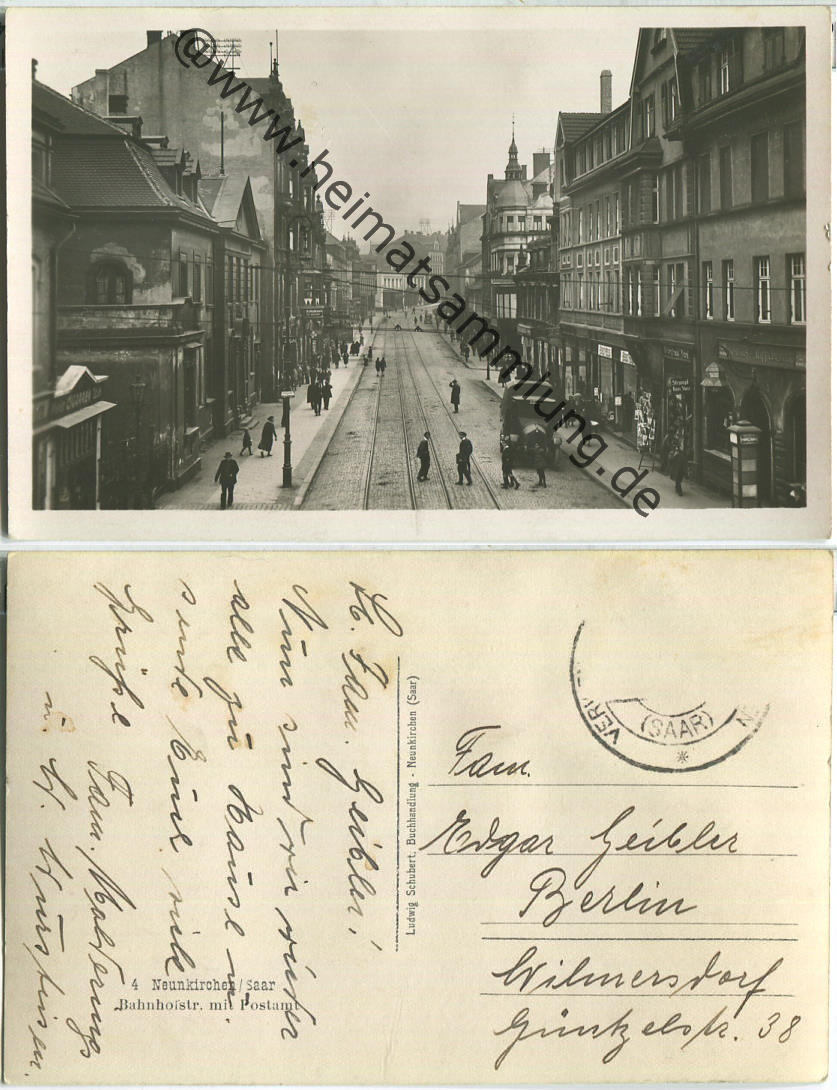 @www.heimatsammlung.de
L. Fam. Geibler!
Nun sind wir wieder
alle zu Hause u.
sende Euch viele
Grüße Fam.
u. W.
Ludwig Schubert, Buchhandlung - Neunkirchen (Saar)
4 Neunkirchen/Saar
Bahnhofstr. mit Postamt
(SAAR)
Fam.
Edgar Geibler
Berlin
Wilmersdorf
Güntzelstr. 38